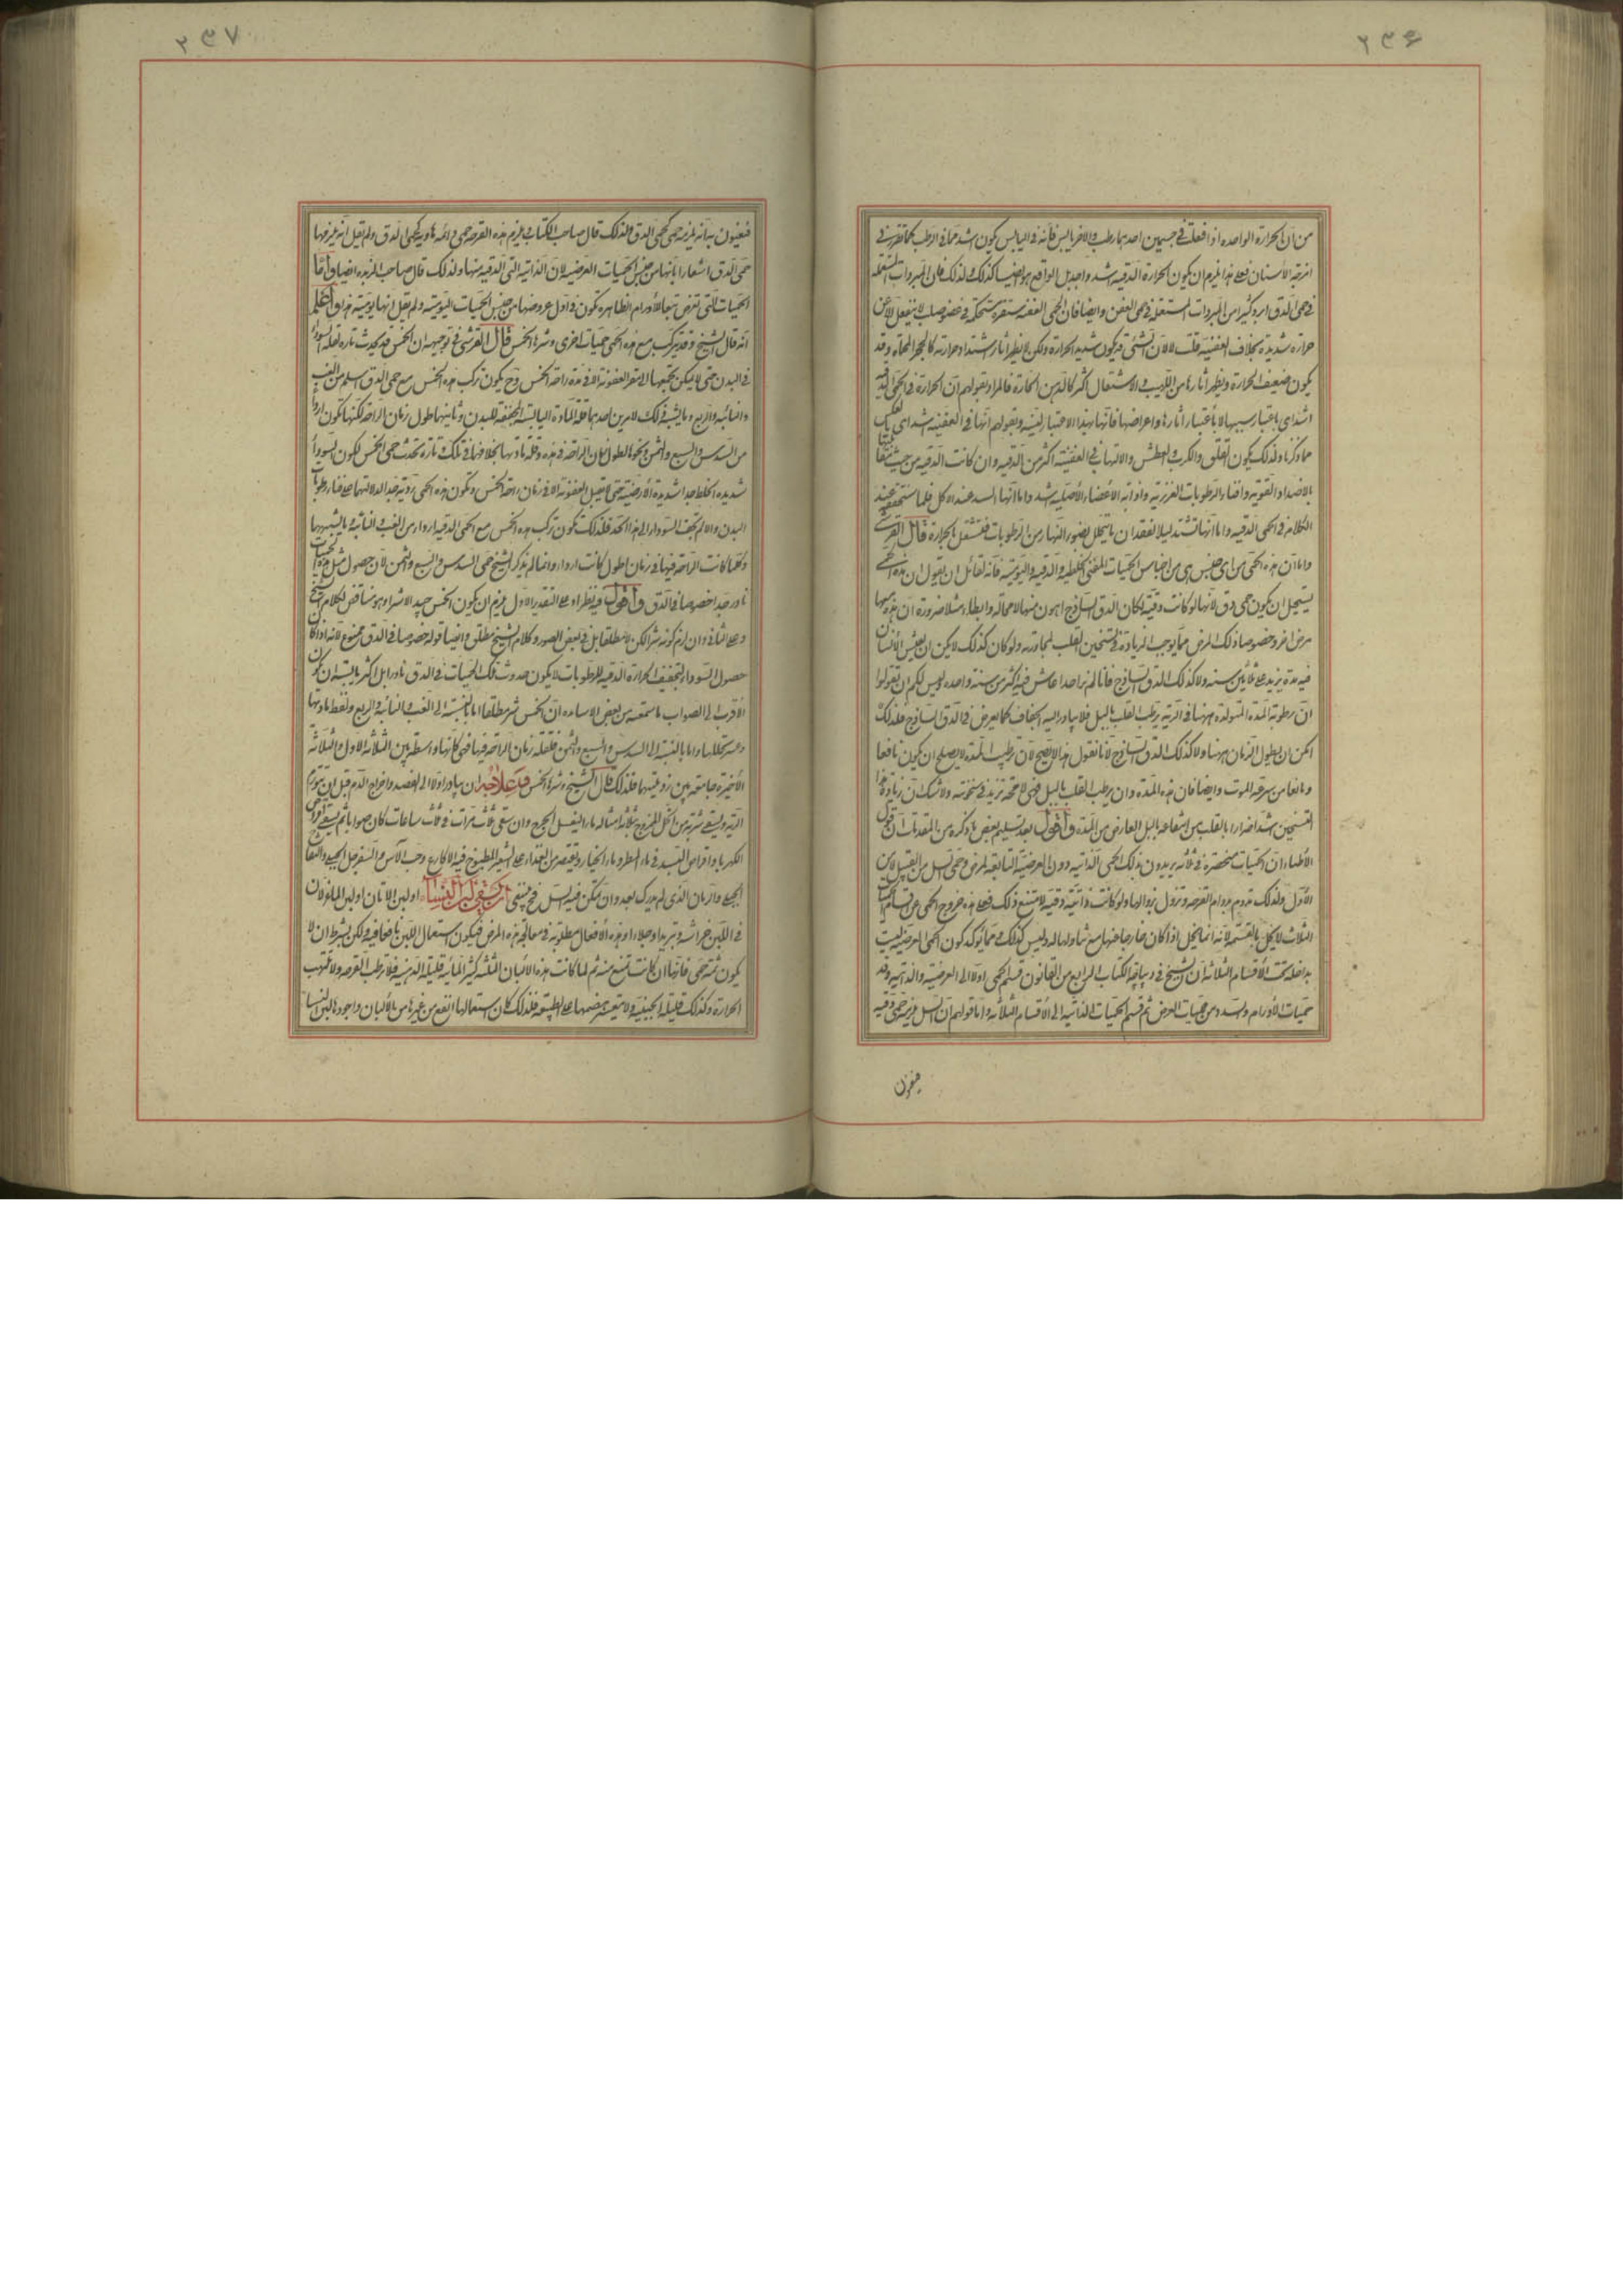 ۲۳۶
من ان الحرارة الواحده اذا فعلت فى جسمين احدهما رطب والاخر يابس فانه فى اليابس يكون اشد مما فى الرطب كما تقرر فى
امزجة الاسنان فعلى هذا يلزم ان يكون الحرارة الدقيه اشد
فى حمى الدق ابرد كثيرا من المبردات المستعمله فى حمى العفن وايضا فان الحمى العفنه مستقره مستحكمه فى عضو صلب لا ينفعل الا عن
حرارة شديدة بخلاف العفنيه قلت لا لان الشئ قد يكون شديد الحرارة ولكن لا يظهر اثار اشتداد حرارته كالحجر المحماة وقد
يكون ضعيف الحرارة ويظهر اثارها من اللهيب والاشتعال اكثر كالدهن الحارة فالمراد بقولهم ان الحرارة فى الحمى الدقيه
اشد اى باعتبار سببها لا باعتبار اثارها واعراضها فانها بهذا الاعتبار لينة وبقولهم انها فى العفنيه اشد اى بالعكس
مما ذكرنا ولذلك يكون القلق والكرب والعطش والالتهاب فى العفنيه اكثر من الدقيه وان كانت الدقيه من حيث
بالاضداد القوية وافناء الرطوبات الغريزيه واذابة الاعضاء الاصليه اشد واما انها تشتد عند الاكل فلما ستحققه عند
الكلام فى الحمى الدقيه واما انها تشتد ليلا فلفقدان ما يتحلل بضوء النهار من الرطوبات فتشتعل الحرارة قال القرشى
واما ان هذه الحمى من اى جنس هى من اجناس الحميات اعنى الخلطيه والدقيه واليوميه فانه لقائل ان يقول ان هذه الحمى
يستحيل ان يكون حمى دق لانها لو كانت دقيه لكان الدق الساذج اهون منها لا محاله وابطاء مثلا ضرورة ان هذه معها
مرض اخر وخصوصا ذلك المرض مما يوجب الزيادة فى تسخين القلب لمجاورته ولو كان كذلك لا يمكن ان يعيش الانسان
فيه مدة يزيد على ثلاثين سنه ولا كذلك الدق الساذج فانا لم نر احدا عاش فيه اكثر من سنة واحده وليس لكم ان تقولوا
ان رطوبة المدة المتولده ههنا فى الرية يرطب القلب بالبل فلا يبادر اليه الجفاف كما يعرض فى الدق الساذج فلذلك
امكن ان يطول الزمان ههنا ولا كذلك الدق الساذج لانا نقول هذا لا يصح لان ترطيب المدة لا يصلح ان يكون نافعا
ومانعا من سرعة الموت وايضا فان هذه المدة وان يرطب القلب بالبل فهى لا محمه تزيد فى سخونته ولا شك ان زيادة هذا
التسخين اشد اضرارا بالقلب من انتفاعه بالبل العارض من المدة واقول بعد تسليم بعض ما ذكره من المقدمات ان قول
الاطباء ان الحميات منحصرة فى ثلاثه يريدون بذلك الحمى الذاتيه دون العرضية التابعة لمرض وحمى السل من القبيل
الاول ولذلك تدوم بدوام القرحه وتزول بزوالها ولو كانت ذاتية دقيه لامتنع ذلك فعلى هذا خروج الحمى عن اقسام
الثلاث لا يخل بالقسمه لانه انما يخل اذا كان خارجا عنها مع تناولها له وليس كذلك ومما يؤكد كون الحمى العرضيه ليست
بداخلة تحت الاقسام الثلاثه ان الشيخ فى ديباجة الكتاب الرابع من القانون قسم الحمى اولا الى العرضيه والذاتيه وعد
حميات الاورام والسدد من حميات العرض ثم قسم الحميات الذاتيه الى الاقسام الثلاثه واما قولهم ان السل يلزمه حمى دقيه
فيعنون
۲۳۷
فيعنون به انه يلزمه حمى كحمى الدق ولذلك قال صاحب الكتاب يلزم هذه القرحه حمى دائمه هاديه كحمى الدق ولم يقل انه يلزمها
حمى الدق اشعارا بانها من جنس الحميات العرضيه لان الذاتية التى الدقيه منها ولذلك قال صاحب الزبده ايضا واما
الحميات التى تعرض تبعا للاورام الظاهره تكون فى اول عروضها من جنس الحميات اليوميه ولم يقل انها يوميه هذا واعلم
انه قال الشيخ وقد تركب مع هذه الحمى حميات اخرى وشرها الخمس قال القرشى فى توجيهه ان الخمس قد يحدث تاره لقلة السوداء
فى البدن حتى لا يمكن تجمعها المعفر العفونه الا فى مدة راحة الخمس وح يكون تركب هذه الخمس مع حمى الدق اسلم من الغب
والنائبه والربع وما يشبه ذلك لامرين احدهما قلة المادة اليابسة المجففة للبدن وثانيهما طول زمان الراحه لكنها تكون اردأ
من السدس والسبع والثمن ونحوها لطول زمان الراحة فى هذه وقلة مادتها بخلافها فى تلك وتارة تحدث حمى الخمس لكون السوداء
شديدة الغلظ جدا شديدة الارضية حتى لا تقبل العفونه الا فى زمان راحة الخمس ويكون هذه الحمى رديه جدا لدلالتها على فناء رطوبات
البدن والا لم تجف السوداء الى هذا الحد فلذلك تكون تركب هذه الخمس مع الحمى الدقيه اردأ من الغب والنائبه وما يشبهها
وكلما كانت الراحة فيها فى زمان اطول كانت اردأ وانما لم يذكر الشيخ حمى السدس والسبع والثمن لان حصول مثل هذه الحميات
نادر جدا خصوصا فى الدق واقول فيه نظر اذ على التقدير الاول يلزم ان يكون الخمس جيد الا شرا وهو مناقض لكلام الشيخ
وعلى الثانى وان لزم كونه شرا لكن لا مطلقا بل فى بعض الصور وكلام الشيخ مطلق وايضا قوله خصوصا فى الدق ممنوع لانه اذا كان
حصول السوداء لتجفيف الحرارة الدقيه للرطوبات لا يكون حدوث تلك الحميات فى الدق نادرا بل اكثريا يشبه ان يكون
الاقرب الى الصواب ما سمعته من بعض الاساتذه ان الخمس شر مطلقا اما بالنسبة الى الغب والنائبه والربع ولغلظ مادتها
وعسر تحللها واما بالنسبة الى السدس والسبع والثمن فلقلة زمان الراحه فيها فهى كانها واسطه بين الثلاثه الاول والثلاثه
الاخيره جامعه بين رذيلتيهما فلذلك قال الشيخ وشرها الخمس قد علاجه ان يبادر اولا الى الفصد واخراج الدم قبل ان تتورم
الريه ويسقى شربه من الخل الممزوج بثلاثة امثاله ماء ليغسل الجرح وان سقى ثلث مرات فى ثلث ساعات كان صوابا ثم يسقى اقراص
الكهربا واقراص البسد فى ماء المطر وماء الخيار ويقتصر من الغذاء على الشعير المطبوخ فيه الاكارع وحب الآس والسفرجل
الجميع واذ بان الذى لم يدرك بعد وان تمكن فيه السل فح يسقى ان يسقى لبن النساء اولبن الاتان اولبن الماعز لان
فى اللبن تبريدا وجلاء وهذه الافعال مطلوبة فى معالجة هذا المرض فيكون استعمال اللبن نافعا فيه ولكن بشرط ان لا
يكون ثمه حمى فانها ان كانت تمنع منه ثم لما كانت هذه الالبان الثلثه كثيرة المائية قليلة الدهنيه فلا ترطب القرحه ولا تلتهب
الحرارة وكذلك قليلة الجبنية ولا يعسر هضمها على الطبيعه فلذلك كان استعمالها انفع من غيرها من الالبان واجودها لبن النساء